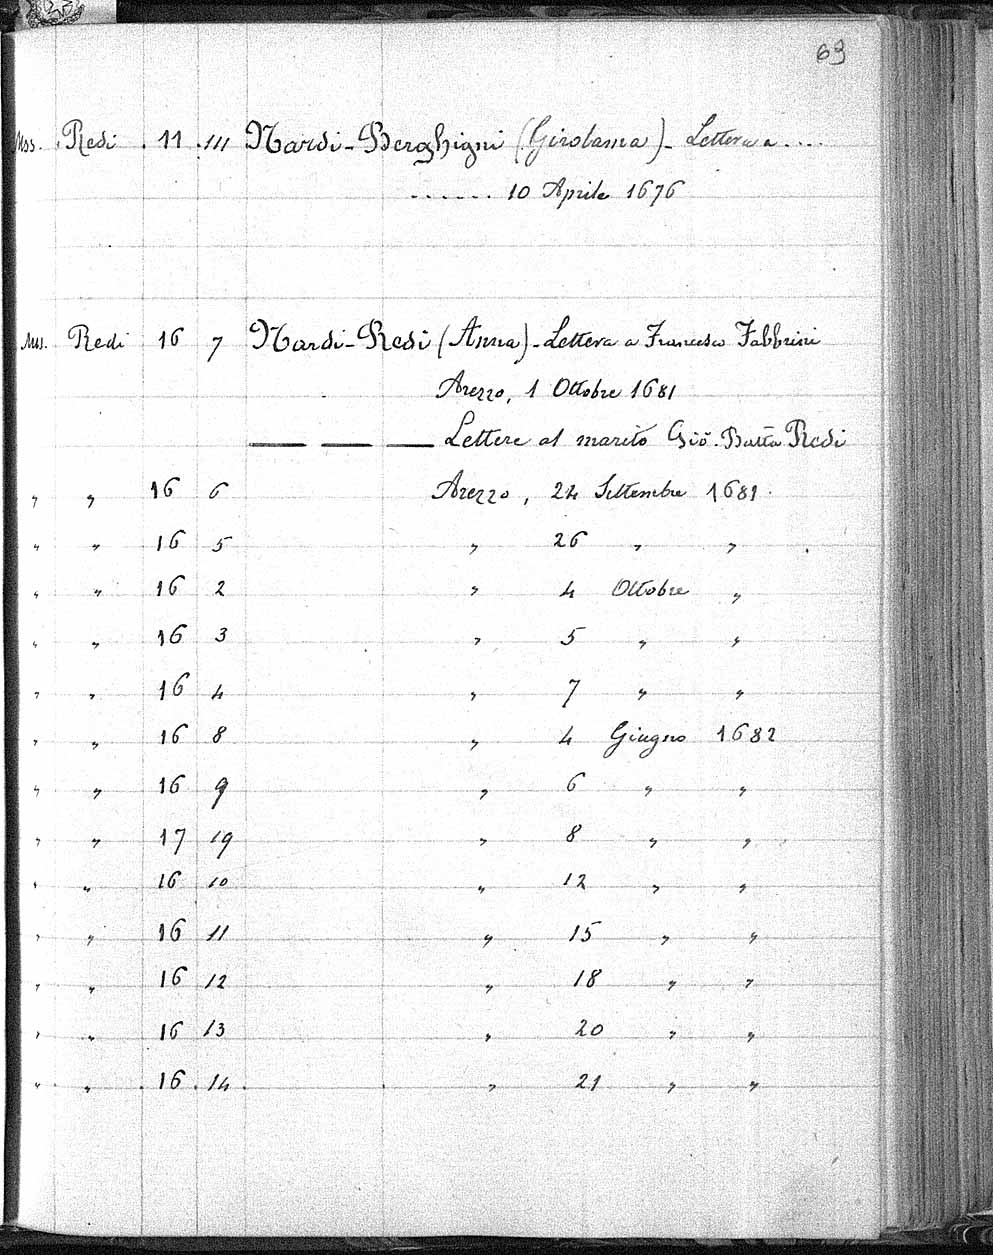 69
Mss. Redi 11 111 Nardi-Berghigni (Girolama) - Lettera a ....
...... 10 Aprile 1676
Mss. Redi 16 7 Nardi-Redi (Anna) - Lettera a Francesco Fabbrini
Arezzo, 1 Ottobre 1681
— — — Lettere al marito Gio. Batta Redi
" " 16 6 Arezzo, 24 Settembre 1681.
" " 16 5 " 26 " "
" " 16 2 " 4 Ottobre "
" " 16 3 " 5 " "
" " 16 4 " 7 " "
" " 16 8 " 4 Giugno 1682
" " 16 9 " 6 " "
" " 17 19 " 8 " "
" " 16 10 " 12 " "
" " 16 11 " 15 " "
" " 16 12 " 18 " "
" " 16 13 " 20 " "
" " 16 14 " 21 " "